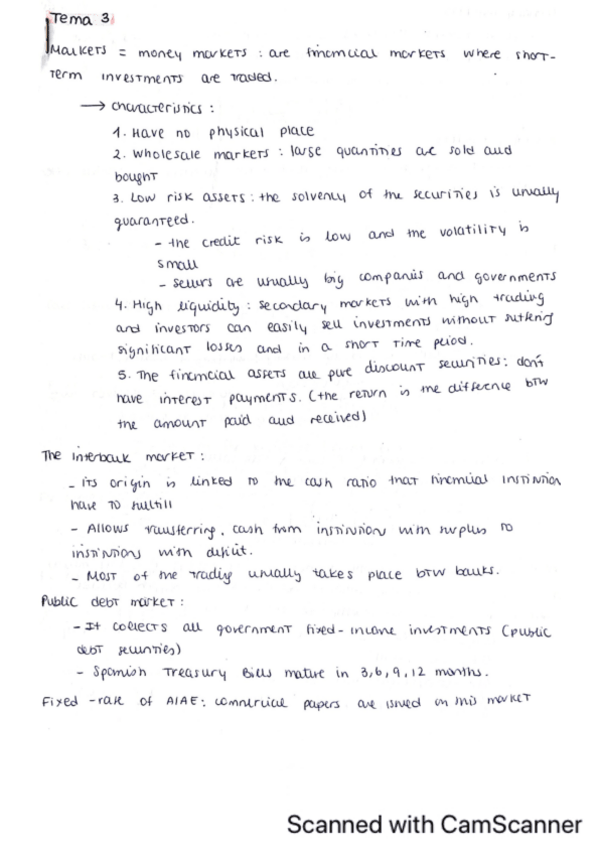 Tema 3
Markers = money markets : are financial markets where short-
Term investments are traded.
→ characteristics :
1. Have no physical place
2. Wholesale markets : large quantities are sold and
bought
3. Low risk assets : the solvency of the securities is usually
guaranteed.
- the credit risk is low and the volatility is
small
- sellers are usually big companies and governments
4. High liquidity : secondary markets with high trading
and investors can easily sell investments without suffering
significant losses and in a short time period.
5. The financial assets are pure discount securities : don't
have interest payments. (the return is the difference btw
the amount paid and received)
The interbank market :
- Its origin is linked to the cash ratio that financial institution
have to fulfill
- Allows transferring, cash from institution with surplus to
institutions with deficit.
- Most of the trading usually takes place btw banks.
Public debt market :
- It collects all government fixed-income investments (public
debt securities)
- Spanish Treasury Bills mature in 3,6,9,12 months.
Fixed -rate of AIAF : commercial papers are issued on this market
Scanned with CamScanner